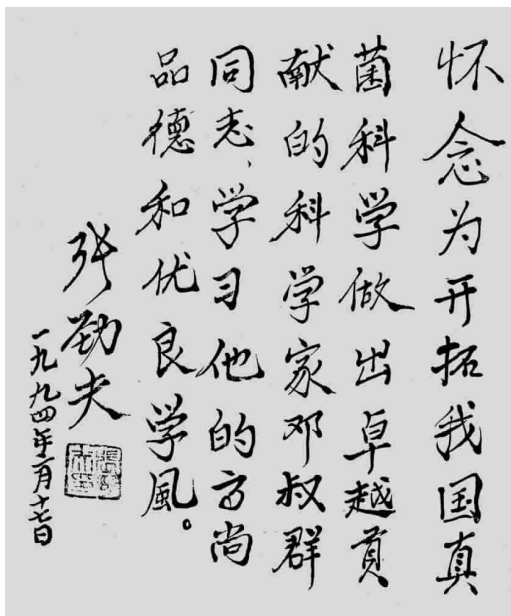 怀念为开拓我国真
菌科学做出卓越贡
献的科学家邓叔群
同志、学习他的高尚
品德和优良学风。
张劲夫
一九九四年一月十七日